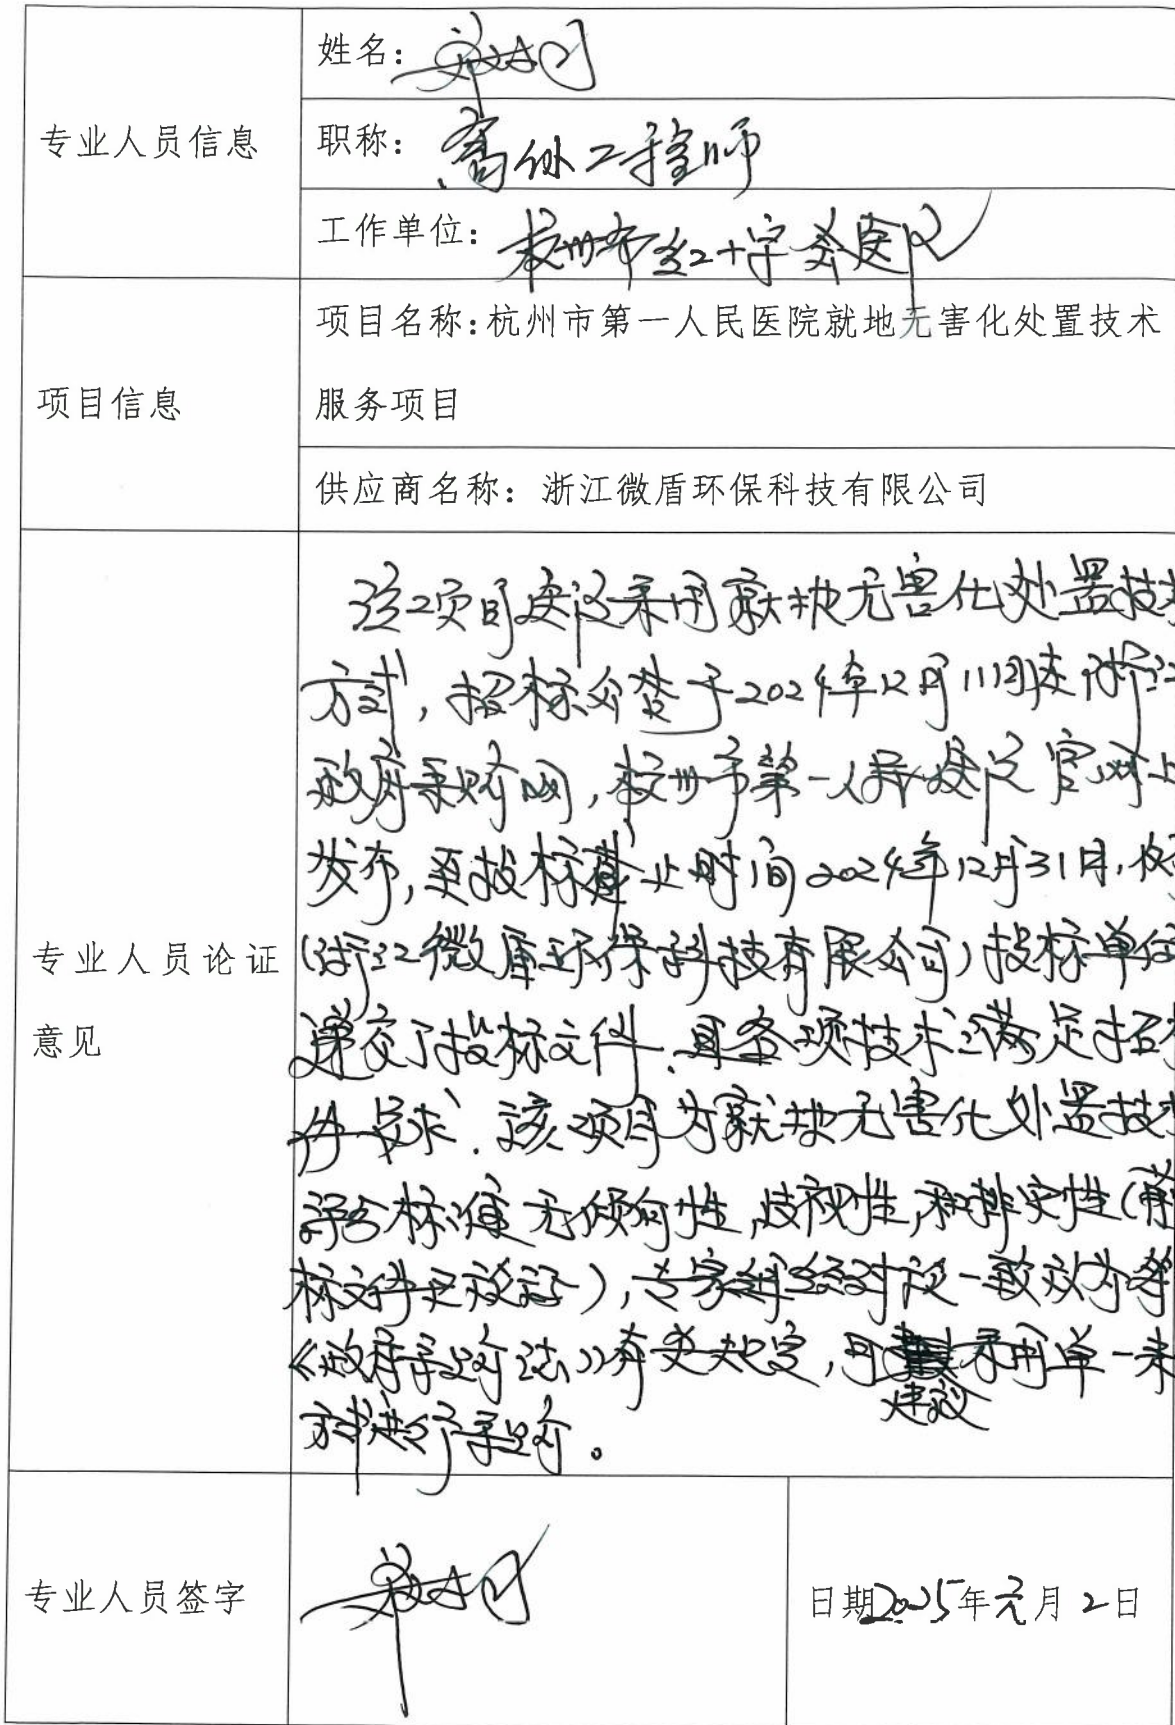 专业人员信息
姓名：
职称：高级工程师
工作单位：杭州市红十字会医院
项目信息
项目名称：杭州市第一人民医院就地无害化处置技术
服务项目
供应商名称：浙江微盾环保科技有限公司
专业人员论证
意见
该项目建设采用就地无害化处置技术
方式，招标公告于2024年12月11日在浙江
政府采购网，杭州市第一人民医院官网上
发布，至投标截止时间2024年12月31日，仅
（浙江微盾环保科技有限公司）投标单位
递交了投标文件，且各项技术满足招
件要求．该项目为就地无害化处置技术
评分标准无倾向性，歧视性，和排它性（
标文件无），专家组经讨论一致认为
《政府采购法》有关规定，可建议采用单一来
方式进行采购。
专业人员签字
日期2025年元月2日